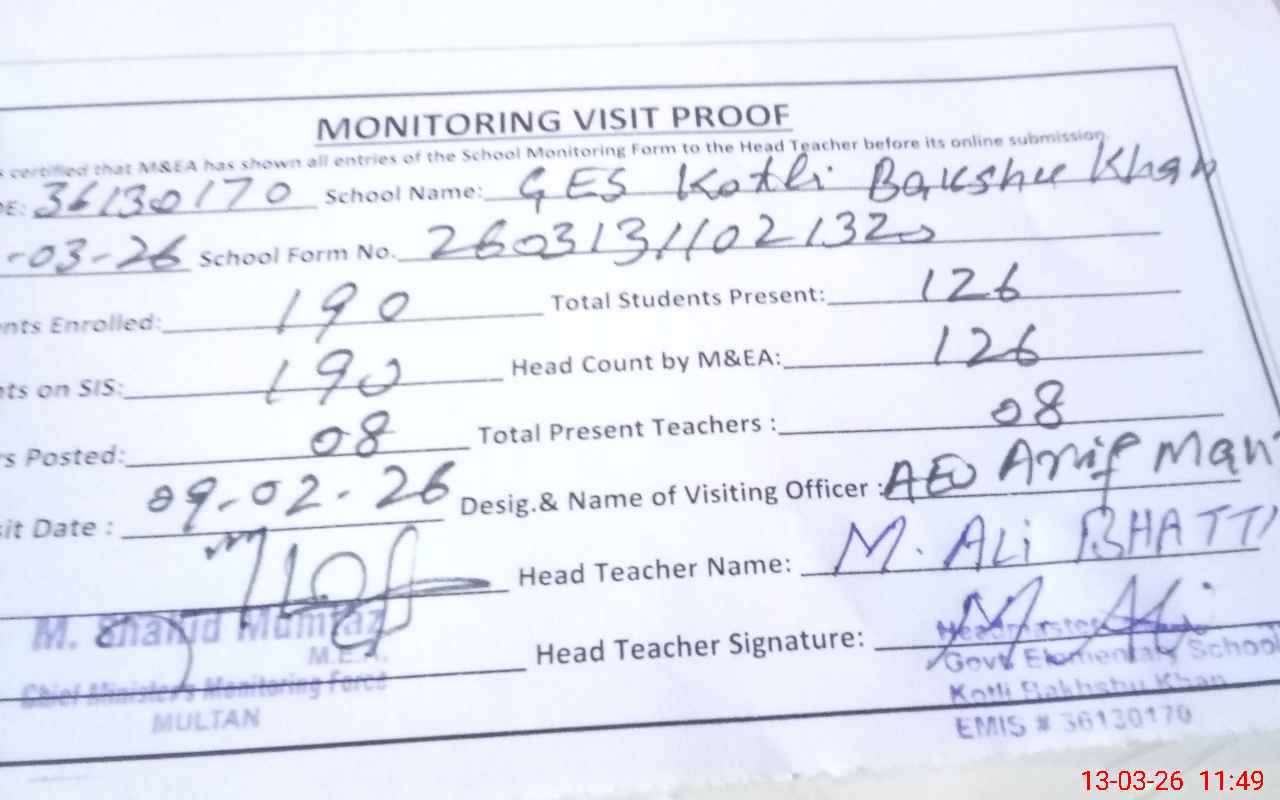 MONITORING VISIT PROOF
certified that M&EA has shown all entries of the School Monitoring Form to the Head Teacher before its online submission.
DE: 36130170 School Name: GES Kotli Bakshu Khan
-03-26 School Form No. 2603131102132
nts Enrolled: 190 Total Students Present: 126
nts on SIS: 190 Head Count by M&EA: 126
rs Posted: 08 Total Present Teachers : 08
sit Date : 09-02-26 Desig.& Name of Visiting Officer : AEO Arif
Head Teacher Name: M. ALi BHATTI
M. Shahid Mumtaz
M.E.A.
Chief Minister's Monitoring Force
MULTAN
Head Teacher Signature: M Ali
Headmaster
Govt Elementary School
Kotli Bakhshu Khan
EMIS # 36130170
13-03-26 11:49